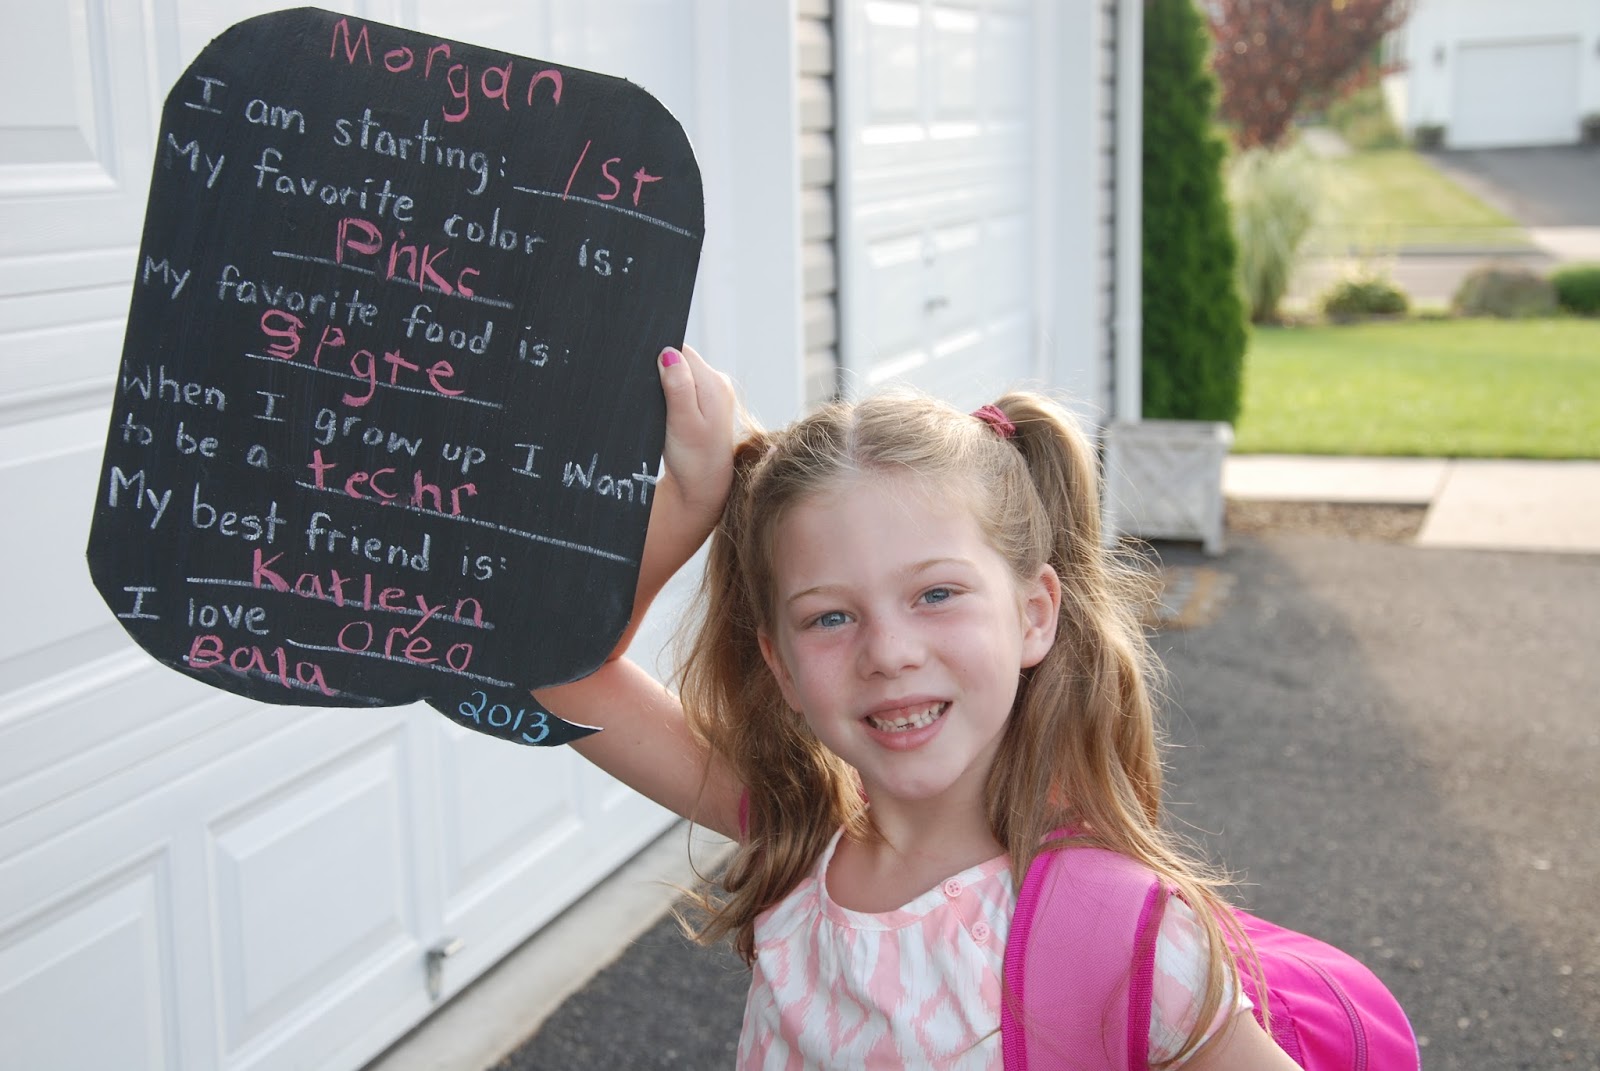 Morgan
I am starting: 1st
My favorite color is:
Pinkc
My favorite food is:
spgte
When I grow up I want
to be a techr
My best friend is:
Katleyn
I love oreo
Bala
2013